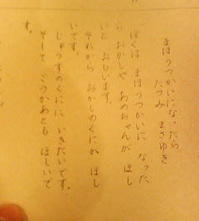 まほうつかいになったら
たつみ まさゆき
ぼくは まほうつかいに なった
ら おかしや あめちゃんが ほし
いと おもいます。
それから おかしのくにが ほし
いです。
じゅうすのくにに いきたいです。
そして ごうかあとも ほしいで
す。